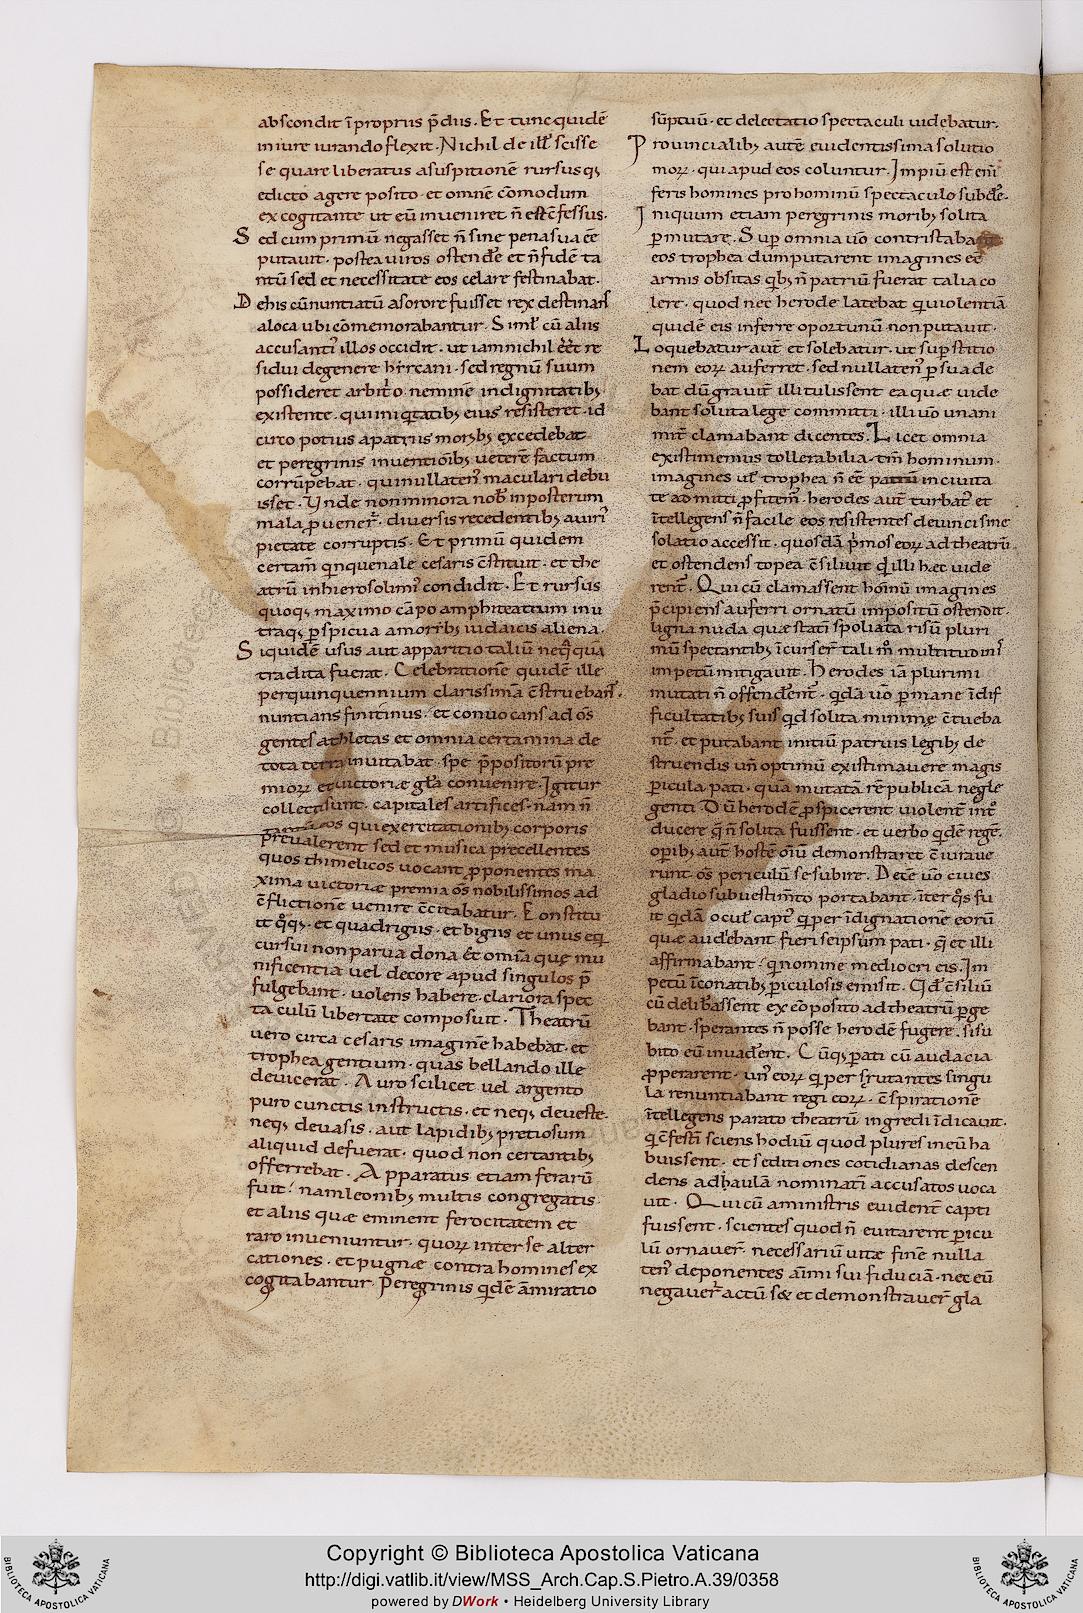 abscondit īpropriis p̄diis. Et tunc quidē
iniure iurando flexit. Nichil de ill' scisse
se quare liberatus a suspitionē rursusq;
edicto agere posito et omnē cōmodum
excogitante ut eū inveniret n̄ est c̄fessus.
Sed cum primū negasset n̄ sine pena sua eē
putavit. postea viros ostend'e et n̄ fidē ta
ntū sed et necessitate eos celare festinabat.
Dehis cū nuntiatū a sorore fuisset rex destinans
a loca ubi cōmemorabantur. Siml' cū aliis
accusantī illos occidit. ut iam nichil eēt re
sidui degenere hircani. sed regnū suum
possideret arbitrio neminē in dignitatib;
existente. qui iniq̄tatib; eius resisteret. id
circo potius apatriis morib; excedebat
et peregrinis inventiōib; veterē factum
corrūpebat. qui nullaten' maculari debu
isset. Unde non minora nob' in posterum
mala p̄ venerr̄. diversis recedentib; a viri
pietate corruptis. Et primū quidem
certam̄ q̄nquenale cesaris c̄stituit. et the
atrū in hierosolimis condidit. Et rursus
quoq; maximo cāpo amphiteatrum in u
traq; p̄spicua a morib; iudaicis aliena.
Siquidē usus aut apparitio taliū neq̄ quā
tradita fuerat. Celebrationē quidē ille
per quinquennium clarissimā c̄struebans.
nuntians finitimis. et convocans ad oīs
gentes athletas et omnia certamina de
tota terra invitabat. spe p̄positorū pre
mioꝝ et victoriæ gl̄a convenire. Igitur
collecti sunt. capitales artifices. nam n̄
qui exercitationib; corporis
prevalerent sed et musica precellentes
quos thimelicos vocant p̄ponentes ma
xima victoriæ premia oīs nobilissimos ad
c̄flictionē venire c̄citabatur. Constitu
it q̄q;. et quadrigiis. et bigiis et unus eq̄
cursui non parva dona. et omīa quę mu
nificentia vel decore apud singulos p̄
fulgebant. volens habere. clariora spec
taculū libertate composuit. Theatrū
vero circa cesaris imaginē habebat. et
trophea gentium. quas bellando ille
devicerat. Auro scilicet vel argento
puro cunctis instructis. et neq; de veste.
neq; de vasis. aut lapidib; pretiosum
aliquid defuerat. quod non certantib;
offerrebat. Apparatus etiam ferarū
fuit. nam leonib; multis congregatis.
et aliis quæ eminent ferocitatem et
raro inveniuntur. quoꝝ inter se alter
cationes. et pugnæ contra homines ex
cogitabantur. Peregrinis q̄dē āmiratio
sūptuū. et delectatio spectaculi videbatur.
Provincialib; autē evidentissima solutio
moꝝ. qui apud eos coluntur. Impiū est enī
feris homines pro hominū spectaculo subd'e.
Iniquum etiam peregrinis morib; solita
p̄mutare. Sup omnia v̄o contristabant
eos trophea dum putarent imagines eē
armis obsitas q̄b; n̄ patriū fuerat talia co
lere. quod nec herode latebat q̄ violentiā
quidē eis inferre oportunū non putavit.
Loquebatur aut̄ et solebatur. ut superstitio
nem eoꝝ auferret. sed nullaten' p̄suade
bat dū gravit̄ illi tulissent ea quæ vide
bant soluta lege committi. illi v̄o unani
mit̄ clamabant dicentes. Licet omnia
existimemus tollerabilia. tm̄ hominum.
imagines ul' trophea n̄ eē patriū in civita
te admitti p̄fitem'. herodes aut̄ turbat' et
ītellegens n̄ facile eos resistentes devincisine
solatio accessit. quosdā p̄mos eoꝝ ad theatrū
et ostendens topea c̄siluit q̄ illi hæc vide
rent̄. Qui cū clamassent hoīnū imagines
p̄cipiens auferri ornatū impositū ostendit.
ligna nuda quæ statī spoliata risū pluri
mū spectantib; īcurser̄. tali m̊ multitudinis
impetū mitigavit. Herodes iā plurimi
mutati n̄ offendent̄. q̄dā v̄o p̄mane īdif
ficultatib; suis q̄d solita minimę c̄tueba
nt̄. et putabant initiū patriis legib; de
struendis un̄ optimū existimavere magis
p̄icula pati. quā mutatā rē publicā negle
genti. Dū herodē p̄spicerent violent̄ int̊
ducere q̄ n̄ solita fuissent. et verbo q̄dē regē.
op̄ib; aut̄ hostē oīū demonstraret c̄iurave
runt oīs periculū se subire. Decē v̄o cives
gladio sub vestimīto portabant. īter q̄s fu
it q̄dā ocul' capt' q̄ per īdignationē eorū
quæ audiebant fieri seipsum pati. q̄ et illi
affirmabant. q̄ nomine mediocri eis. Im
petū īconatib; p̄iculosis emisit. Q̄d c̄siliū
cū deliberassent ex cōposito ad theatrū p̄ge
bant. sperantes n̄ posse herodē fugere. si su
bito eū invadent. Cūq; parati cū audacia
p̄perarent. un' eoꝝ q̄ per scrutantes singu
la renuntiabant regi eoꝝ. c̄spirationē
ītellegens parato theatrū ingredi īdicavit.
q̄ c̄festī sciens hodiū quod plures in eū ha
buissent. et seditiones cotidianas descen
dens ad haulā nominati accusatos voca
vit. Qui cū a ministris evident̄ capti
fuissent. scientes quod n̄ evitarent p̄icu
lū ornaver̄. necessariū vitæ finē nulla
ten' deponentes aīmi sui fiduciā. nec eū
negaver̄ actū s& et demonstraver̄ gla
Copyright © Biblioteca Apostolica Vaticana
http://digi.vatlib.it/view/MSS_Arch.Cap.S.Pietro.A.39/0358
powered by DWork • Heidelberg University Library
BIBLIOTECA APOSTOLICA VATICANA
BIBLIOTECA APOSTOLICA VATICANA